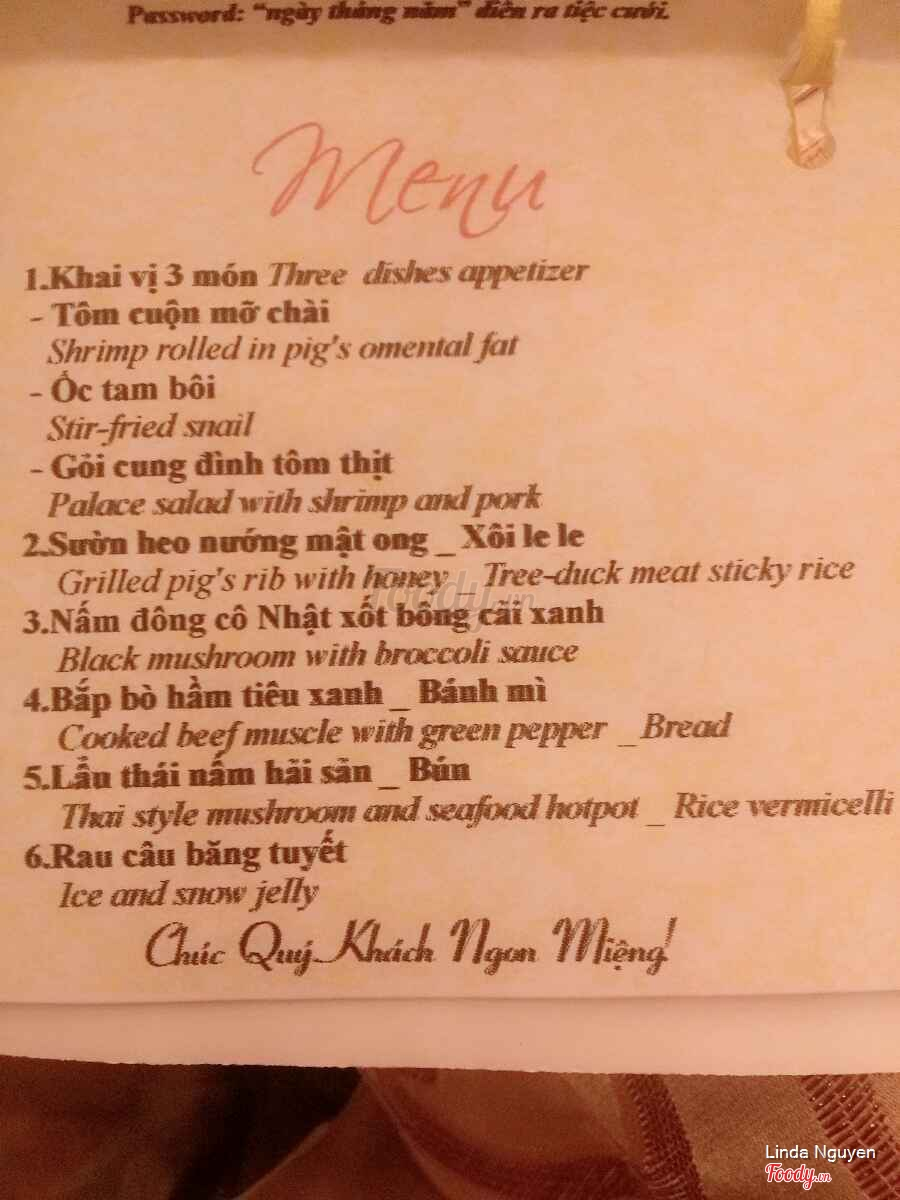 Password: "ngày tháng năm" diễn ra tiệc cưới.
Menu
1.Khai vị 3 món Three dishes appetizer
- Tôm cuộn mỡ chài
Shrimp rolled in pig's omental fat
- Ốc tam bôi
Stir-fried snail
- Gỏi cung đình tôm thịt
Palace salad with shrimp and pork
2.Sườn heo nướng mật ong _ Xôi le le
Grilled pig's rib with honey _ Tree-duck meat sticky rice
Foody.vn
3.Nấm đông cô Nhật xốt bông cải xanh
Black mushroom with broccoli sauce
4.Bắp bò hầm tiêu xanh _ Bánh mì
Cooked beef muscle with green pepper _ Bread
5.Lẩu thái nấm hải sản _ Bún
Thai style mushroom and seafood hotpot _ Rice vermicelli
6.Rau câu băng tuyết
Ice and snow jelly
Chúc Quý Khách Ngon Miệng!
Linda Nguyen
Foody.vn